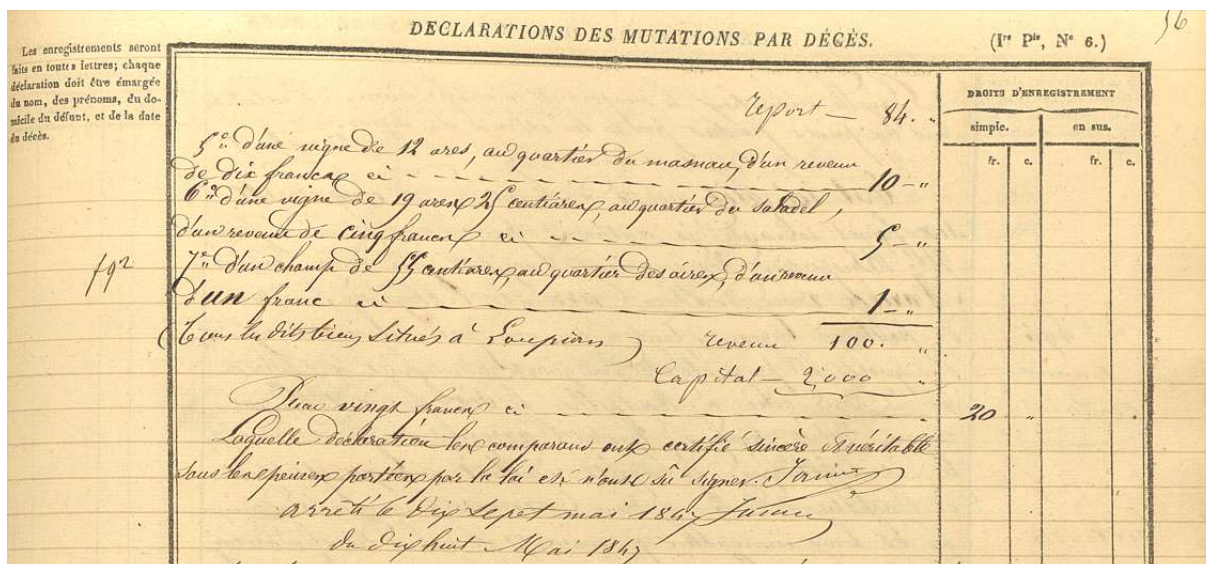 56
DECLARATIONS DES MUTATIONS PAR DÉCÈS.
(Ire Pie, No 6.)
Les enregistrements seront
faits en toutes lettres; chaque
déclaration doit être émargée
du nom, des prénoms, du do-
micile du défunt, et de la date
du décès.
DROITS D'ENREGISTREMENT
simple. en sus.
fr. c. fr. c.
report — 84. "
5° d'une vigne de 12 ares, au quartier du masnau, d'un revenu
de dix francs ci 10 — "
6° d'une vigne de 19 ares 25 centiares, au quartier du saladel,
d'un revenu de cinq francs ci 5 — "
7° d'un champ de 55 centiares, au quartier des aires, d'un revenu
d'un franc ci 1 — "
(Tous les dits biens situés à Loupian) revenu 100. "
Capital — 2,000 "
vingt francs ci 20 "
Laquelle déclaration les comparans ont certifié sincère & véritable
sous les peines portées par la loi et n'ont sû signer.
arrêté le dix sept mai 1847
du dix huit Mai 1847